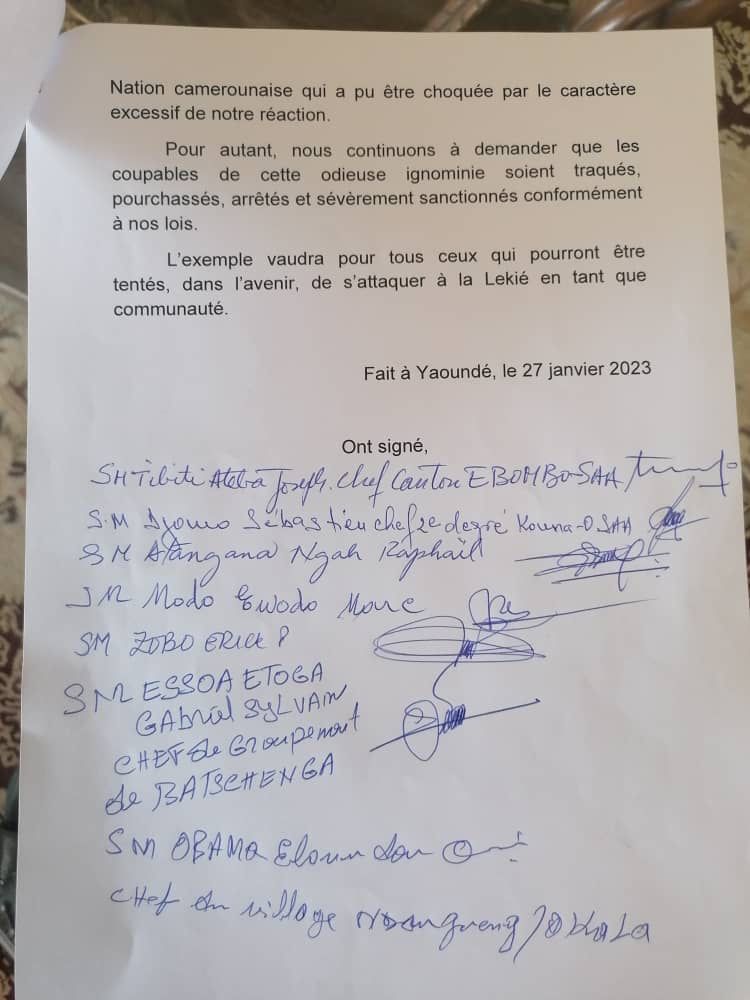 Nation camerounaise qui a pu être choquée par le caractère
excessif de notre réaction.
Pour autant, nous continuons à demander que les
coupables de cette odieuse ignominie soient traqués,
pourchassés, arrêtés et sévèrement sanctionnés conformément
à nos lois.
L'exemple vaudra pour tous ceux qui pourront être
tentés, dans l'avenir, de s'attaquer à la Lekié en tant que
communauté.
Fait à Yaoundé, le 27 janvier 2023
Ont signé,
SM Tibiti Ateba Joseph. Chef Canton EBOMBO-SAA
S.M Djomo Sébastien chef 2e degré Kouna-O SAA
SM Atangana Ngah Raphaël
SM Modo Ewodo Marc
SM ZOBO ERICK P
SM ESSOA ETOGA
GAbriel SYLVAIN
CHEF de Groupement
de BATSCHENGA
SM OBAMA Eloundou
Chef du village OKALA